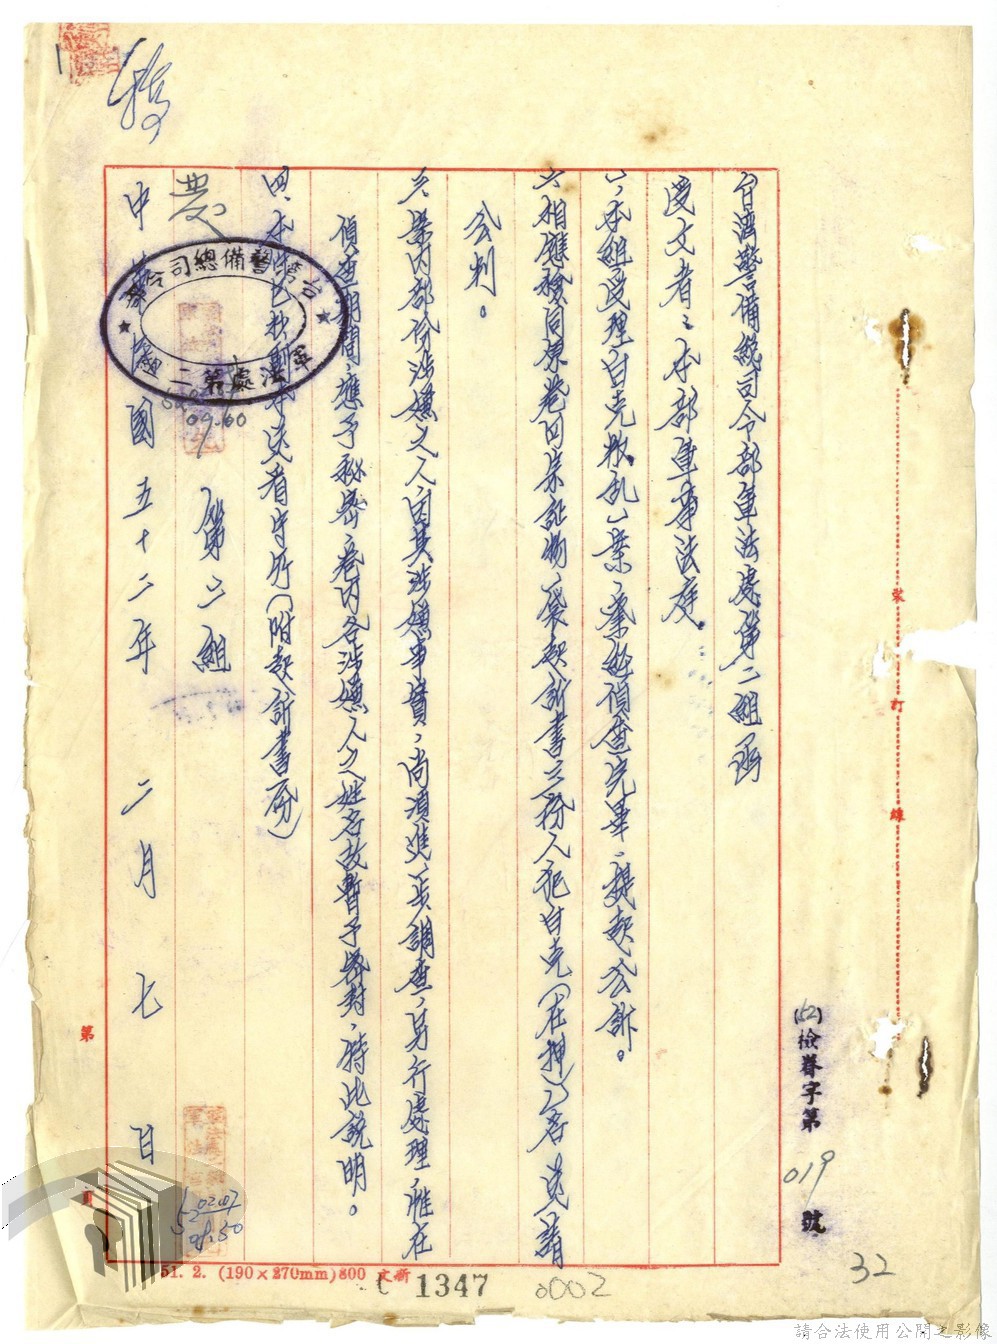 (52)檢眷字第019號
台灣警備總司令部軍法處第二組函
受文者：本部軍事法庭。
一、本組受理白克叛乱一案，業經偵查完畢，提起公訴。
二、相應檢同原卷 宗証物 袋起訴書 份人犯白克（在押）一名送請
公判。
三、案內部份涉嫌之人因其涉嫌事實，尚須進 調查，另行處理，唯在
偵查期間應予秘密，卷內各涉嫌人之姓名故暫予密封，特此說明。
四、本 已 送看守所（附起訴書 份）
第二組
中 國五十二年二月七日
稿
台灣警備總司令部
軍法處第二組
09.60
520207
09.50
裝 訂 線
第
頁
51. 2. (190×270mm)800 文新
1347
0002
32
請合法使用公開之影像